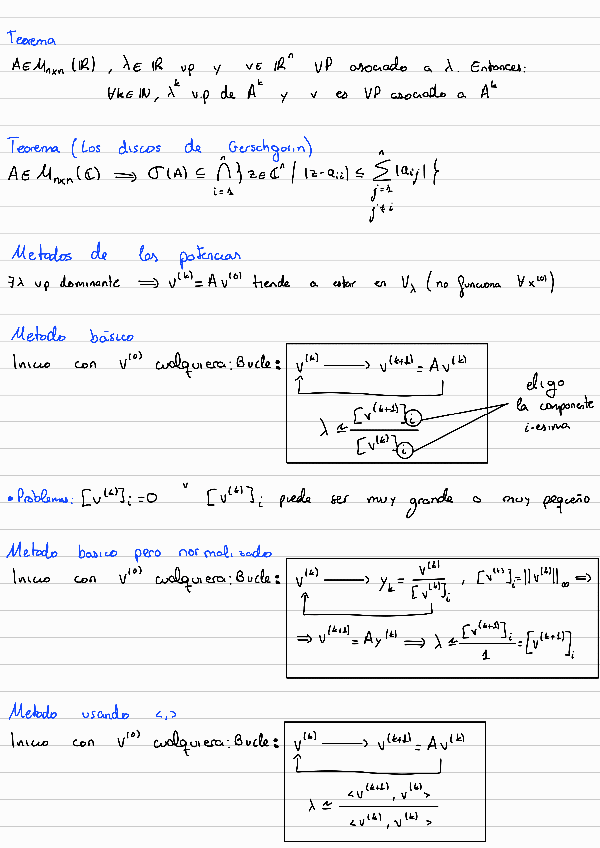 Teorema
A∈M_{n×n}(ℝ), λ∈ℝ vp y v∈ℝ^n VP asociado a λ. Entonces:
∀k∈ℕ, λ^k vp de A^k y v es VP asociado a A^k
Teorema (Los discos de Gerschgorin)
A∈M_{n×n}(ℂ) ⟹ σ(A) ⊆ ⋂_{i=1}^{n} } z∈ℂ^n / |z-a_{ii}| ≤ ∑_{j=1, j≠i}^{n} |a_{ij}| {
Metodos de las potencias
∃λ vp dominante ⟹ v^{(k)} = A v^{(0)} tiende a estar en V_λ (no funciona ∀x^{(0)})
Metodo básico
Inicio con v^{(0)} cualquiera: Bucle: v^{(k)} ⟶ v^{(k+1)} = A v^{(k)}
λ ≈ [v^{(k+1)}]_i / [v^{(k)}]_i
elijo
la componente
i-esima
• Problemas: [v^{(k)}]_i = 0 ∨ [v^{(k)}]_i puede ser muy grande o muy pequeño
Metodo basico pero normalizado
Inicio con v^{(0)} cualquiera: Bucle: v^{(k)} ⟶ y_k = v^{(k)} / [v^{(k)}]_i , [v^{(k)}]_i = ||v^{(k)}||_∞ ⟹
⟹ v^{(k+1)} = A y^{(k)} ⟹ λ ≈ [v^{(k+1)}]_i / 1 = [v^{(k+1)}]_i
Metodo usando <,>
Inicio con v^{(0)} cualquiera: Bucle: v^{(k)} ⟶ v^{(k+1)} = A v^{(k)}
λ ≈ <v^{(k+1)}, v^{(k)}> / <v^{(k)}, v^{(k)}>